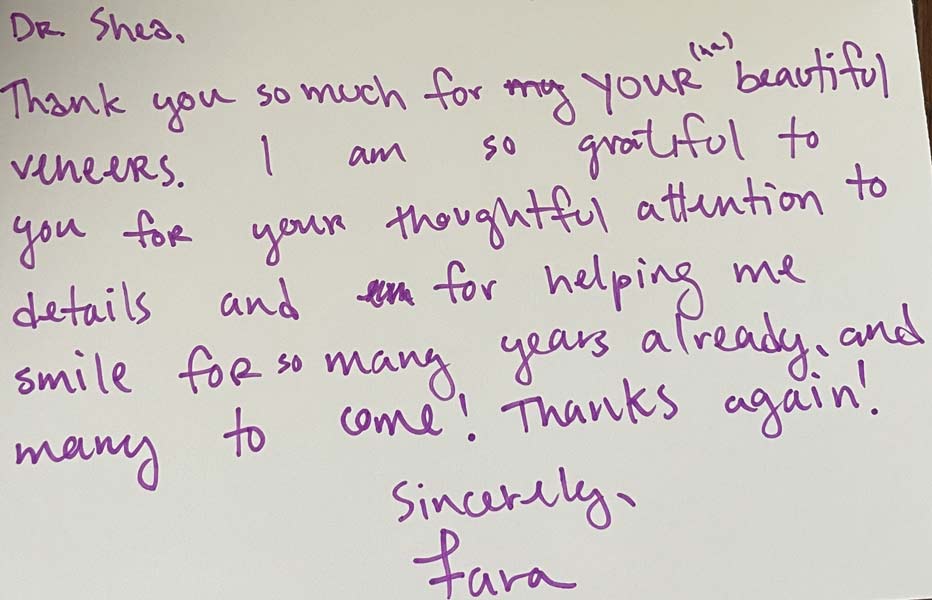 Dr. Shea,
Thank you so much for my YOUR (ha) beautiful
veneers. I am so grateful to
you for your thoughtful attention to
details and for helping me
smile for so many years already, and
many to come! Thanks again!
Sincerely,
Fara